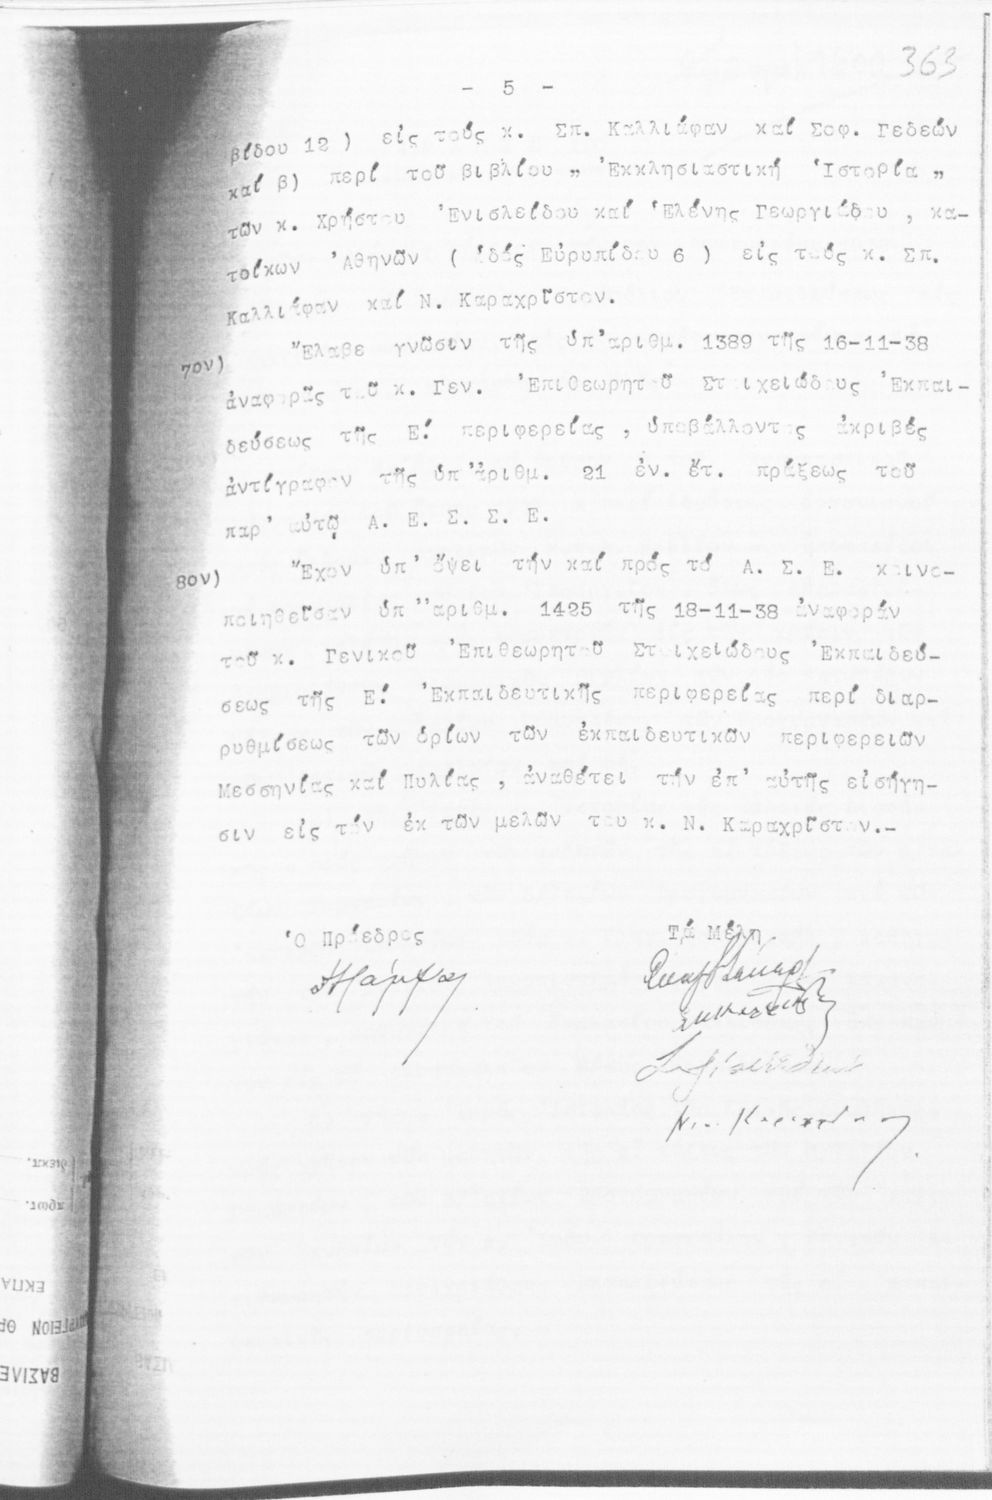 363
- 5 -
βίδου 12 ) εἰς τούς κ. Σπ. Καλλιάφαν καί Σοφ. Γεδεών
καί β) περί τοῦ βιβλίου „ Ἐκκλησιαστική Ἱστορία „
τῶν κ. Χρήστου Ἐνισλείδου καί Ἑλένης Γεωργιάδου , κα-
τοίκων Ἀθηνῶν ( ὁδός Εὐρυπίδου 6 ) εἰς τούς κ. Σπ.
Καλλιάφαν καί Ν. Καραχρῖστον.
7ον) Ἔλαβε γνῶσιν τῆς ὑπ' ἀριθμ. 1389 τῆς 16-11-38
ἀναφορᾶς τοῦ κ. Γεν. Ἐπιθεωρητοῦ Στοιχειώδους Ἐκπαι-
δεύσεως τῆς Ε! περιφερείας , ὑποβάλλοντος ἀκριβές
ἀντίγραφον τῆς ὑπ' ἀριθμ. 21 ἐν. ἔτ. πράξεως τοῦ
παρ' αὐτῷ Α. Ε. Σ. Σ. Ε.
8ον) Ἔχον ὑπ' ὄψει τήν καί πρός τό Α. Σ. Ε. κοινο-
ποιηθεῖσαν ὑπ' ἀριθμ. 1425 τῆς 18-11-38 ἀναφοράν
τοῦ κ. Γενικοῦ Ἐπιθεωρητοῦ Στοιχειώδους Ἐκπαιδεύ-
σεως τῆς Ε! Ἐκπαιδευτικῆς περιφερείας περί διαρ-
ρυθμίσεως τῶν ὁρίων τῶν ἐκπαιδευτικῶν περιφερειῶν
Μεσσηνίας καί Πυλίας , ἀναθέτει τήν ἐπ' αὐτῆς εἰσήγη-
σιν εἰς τόν ἐκ τῶν μελῶν του κ. Ν. Καραχρῖστον.-
Ὁ Πρόεδρος Τά Μέλη
διεκπ.
πρωτ.
ΒΑΣΙΛΕ